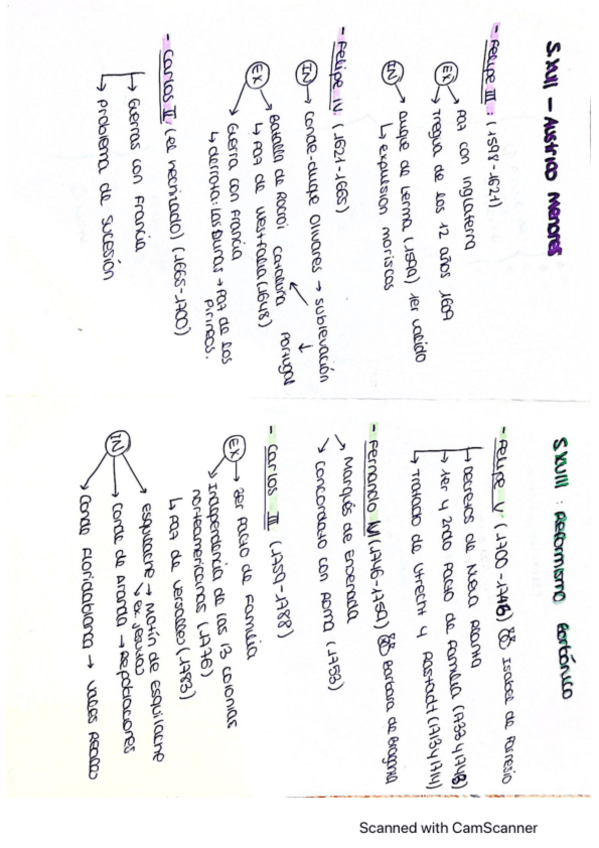 S.XVII - Austrias Menores
- Felipe III: (1598-1621)
EX → Paz con Inglaterra
Tregua de los 12 años 1609
IN → Duque de Lerma (1599) 1er valido
↳ expulsión moriscos
- Felipe IV: (1621-1665)
IN → Conde-duque Olivares → sublevación
Cataluña Portugal
EX → Batalla de Rocroi
↳ Paz de Westfalia (1648)
Guerra con Francia
↳ derrota: las Dunas → Paz de los
Pirineos.
- Carlos II (el hechizado) (1665-1700)
→ Guerras con Francia
→ Problema de sucesión
S.XVIII: Reformismo Borbónico
- Felipe V (1700-1746) Isabel de Farnesio
→ Decretos de Nueva Planta
→ 1er y 2ndo Pacto de Familia (1733 y 1743)
→ Tratado de Utrecht y Rastadt (1713 y 1714)
- Fernando VI (1746-1759) Barbara de Braganza
→ Marqués de Ensenada
→ Concordato con Roma (1753)
- Carlos III (1759-1788)
EX → 3er Pacto de Familia
Independencia de las 13 colonias
norteamericanas (1776)
↳ Paz de Versalles (1783)
IN
Esquilache → Motín de Esquilache
↳ ex. jesuitas
Conde de Aranda → Repoblaciones
Conde Floridablanca → Vales Reales
Scanned with CamScanner